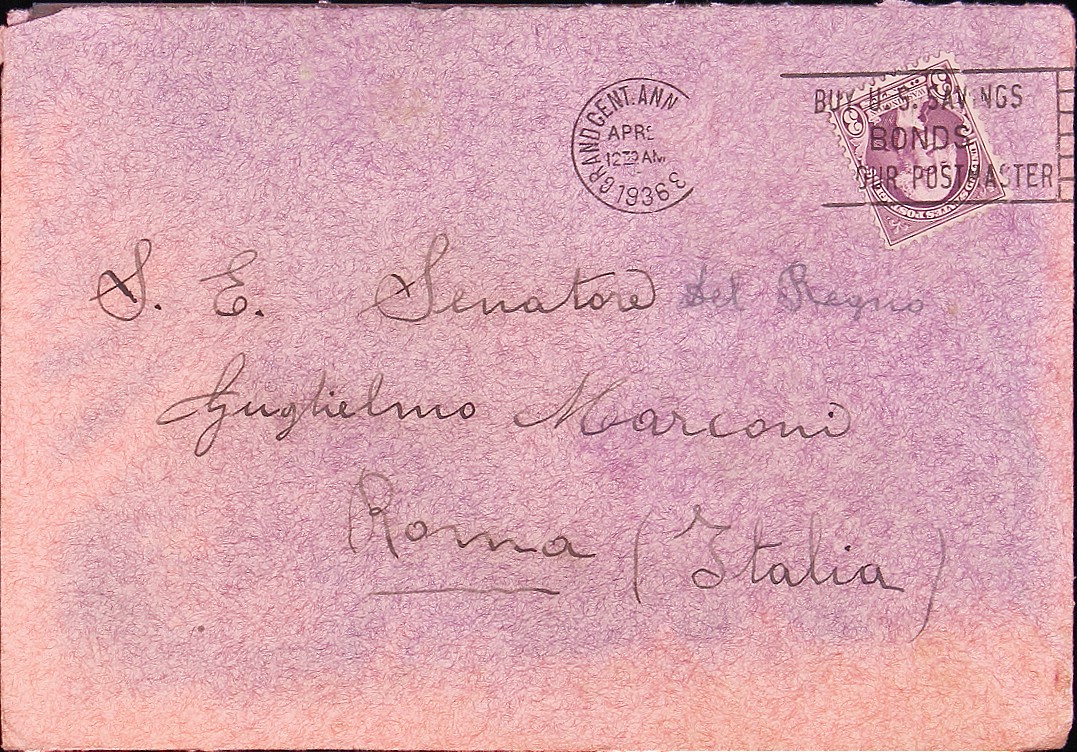 GRAND CENT. ANN
APR
12 AM
1936
BUY U.S. SAVINGS
BONDS
OUR POSTMASTER
3 3
S. E. Senatore del Regno
Guglielmo Marconi
Roma (Italia)